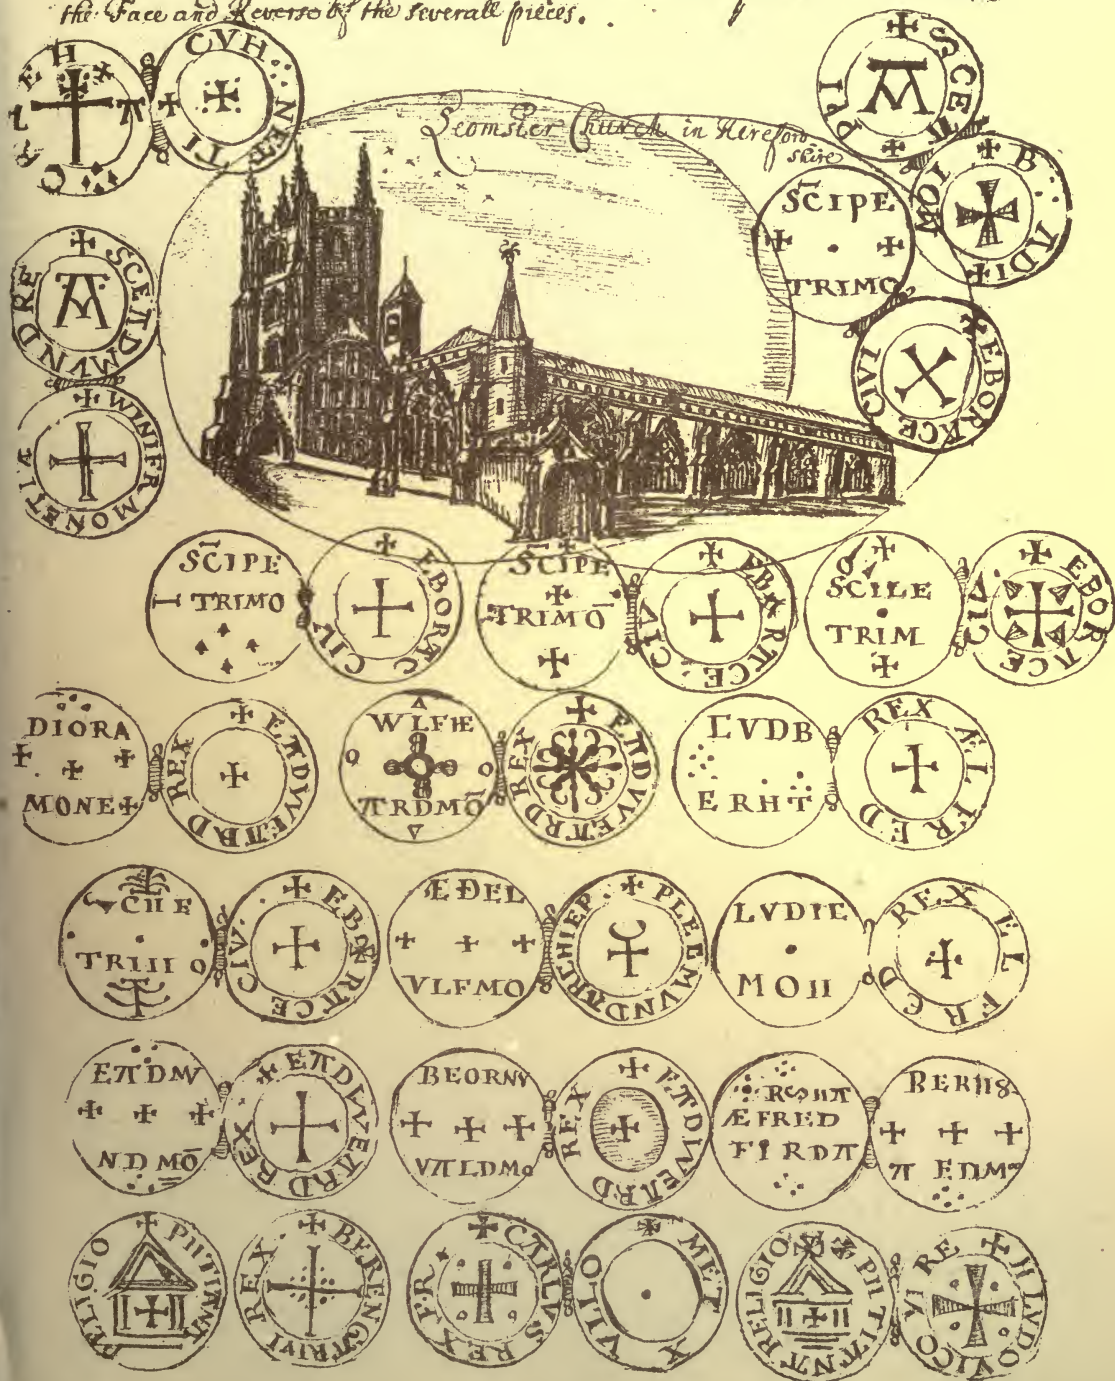 the Face and Reverse of the severall pieces.
CVH∴NET TI
Leomster Church in Hereford
shire
+SCE
+B∴ADI+
MOI
SC̄IPE
+ · +
TRIMO
+EBORACE CIVI
+SCEADMVNDRE
+WINIFR MONETIÆ
SC̄IPE
TRIMO
+EBORAC CIV
SC̄IPE
TRIMŌ
+EBARACE CIV
SCILE
TRIM
+EBORACE CIV
DIORA
+ + +
MONE+
+EADVVEARD REX
WLFIE
ARDMŌ
+EADVVEARD REX
CVDB
ERHT
REX ÆLFRED
CIIE
TRIII O
+EBORACE CIV
ÆÐEL
+ + +
VLFMO
+PLEGMVND ARCHIEP
LVDIE
MOII
REX ELFRED
EADMV
+ + +
NDMŌ
+EADVVEARD REX
BEORNV
+ + +
VALDMo
+EADVVEARD REX
ÆFRED
FIRDA
+ + +
A EDMo
+PIITIANA RELIGIO
+BERENGARIVI REX
+CARLVS REX FR
+MET X VLLO
+PIITIANA RELIGIO
+HLVDOVICO VI RE